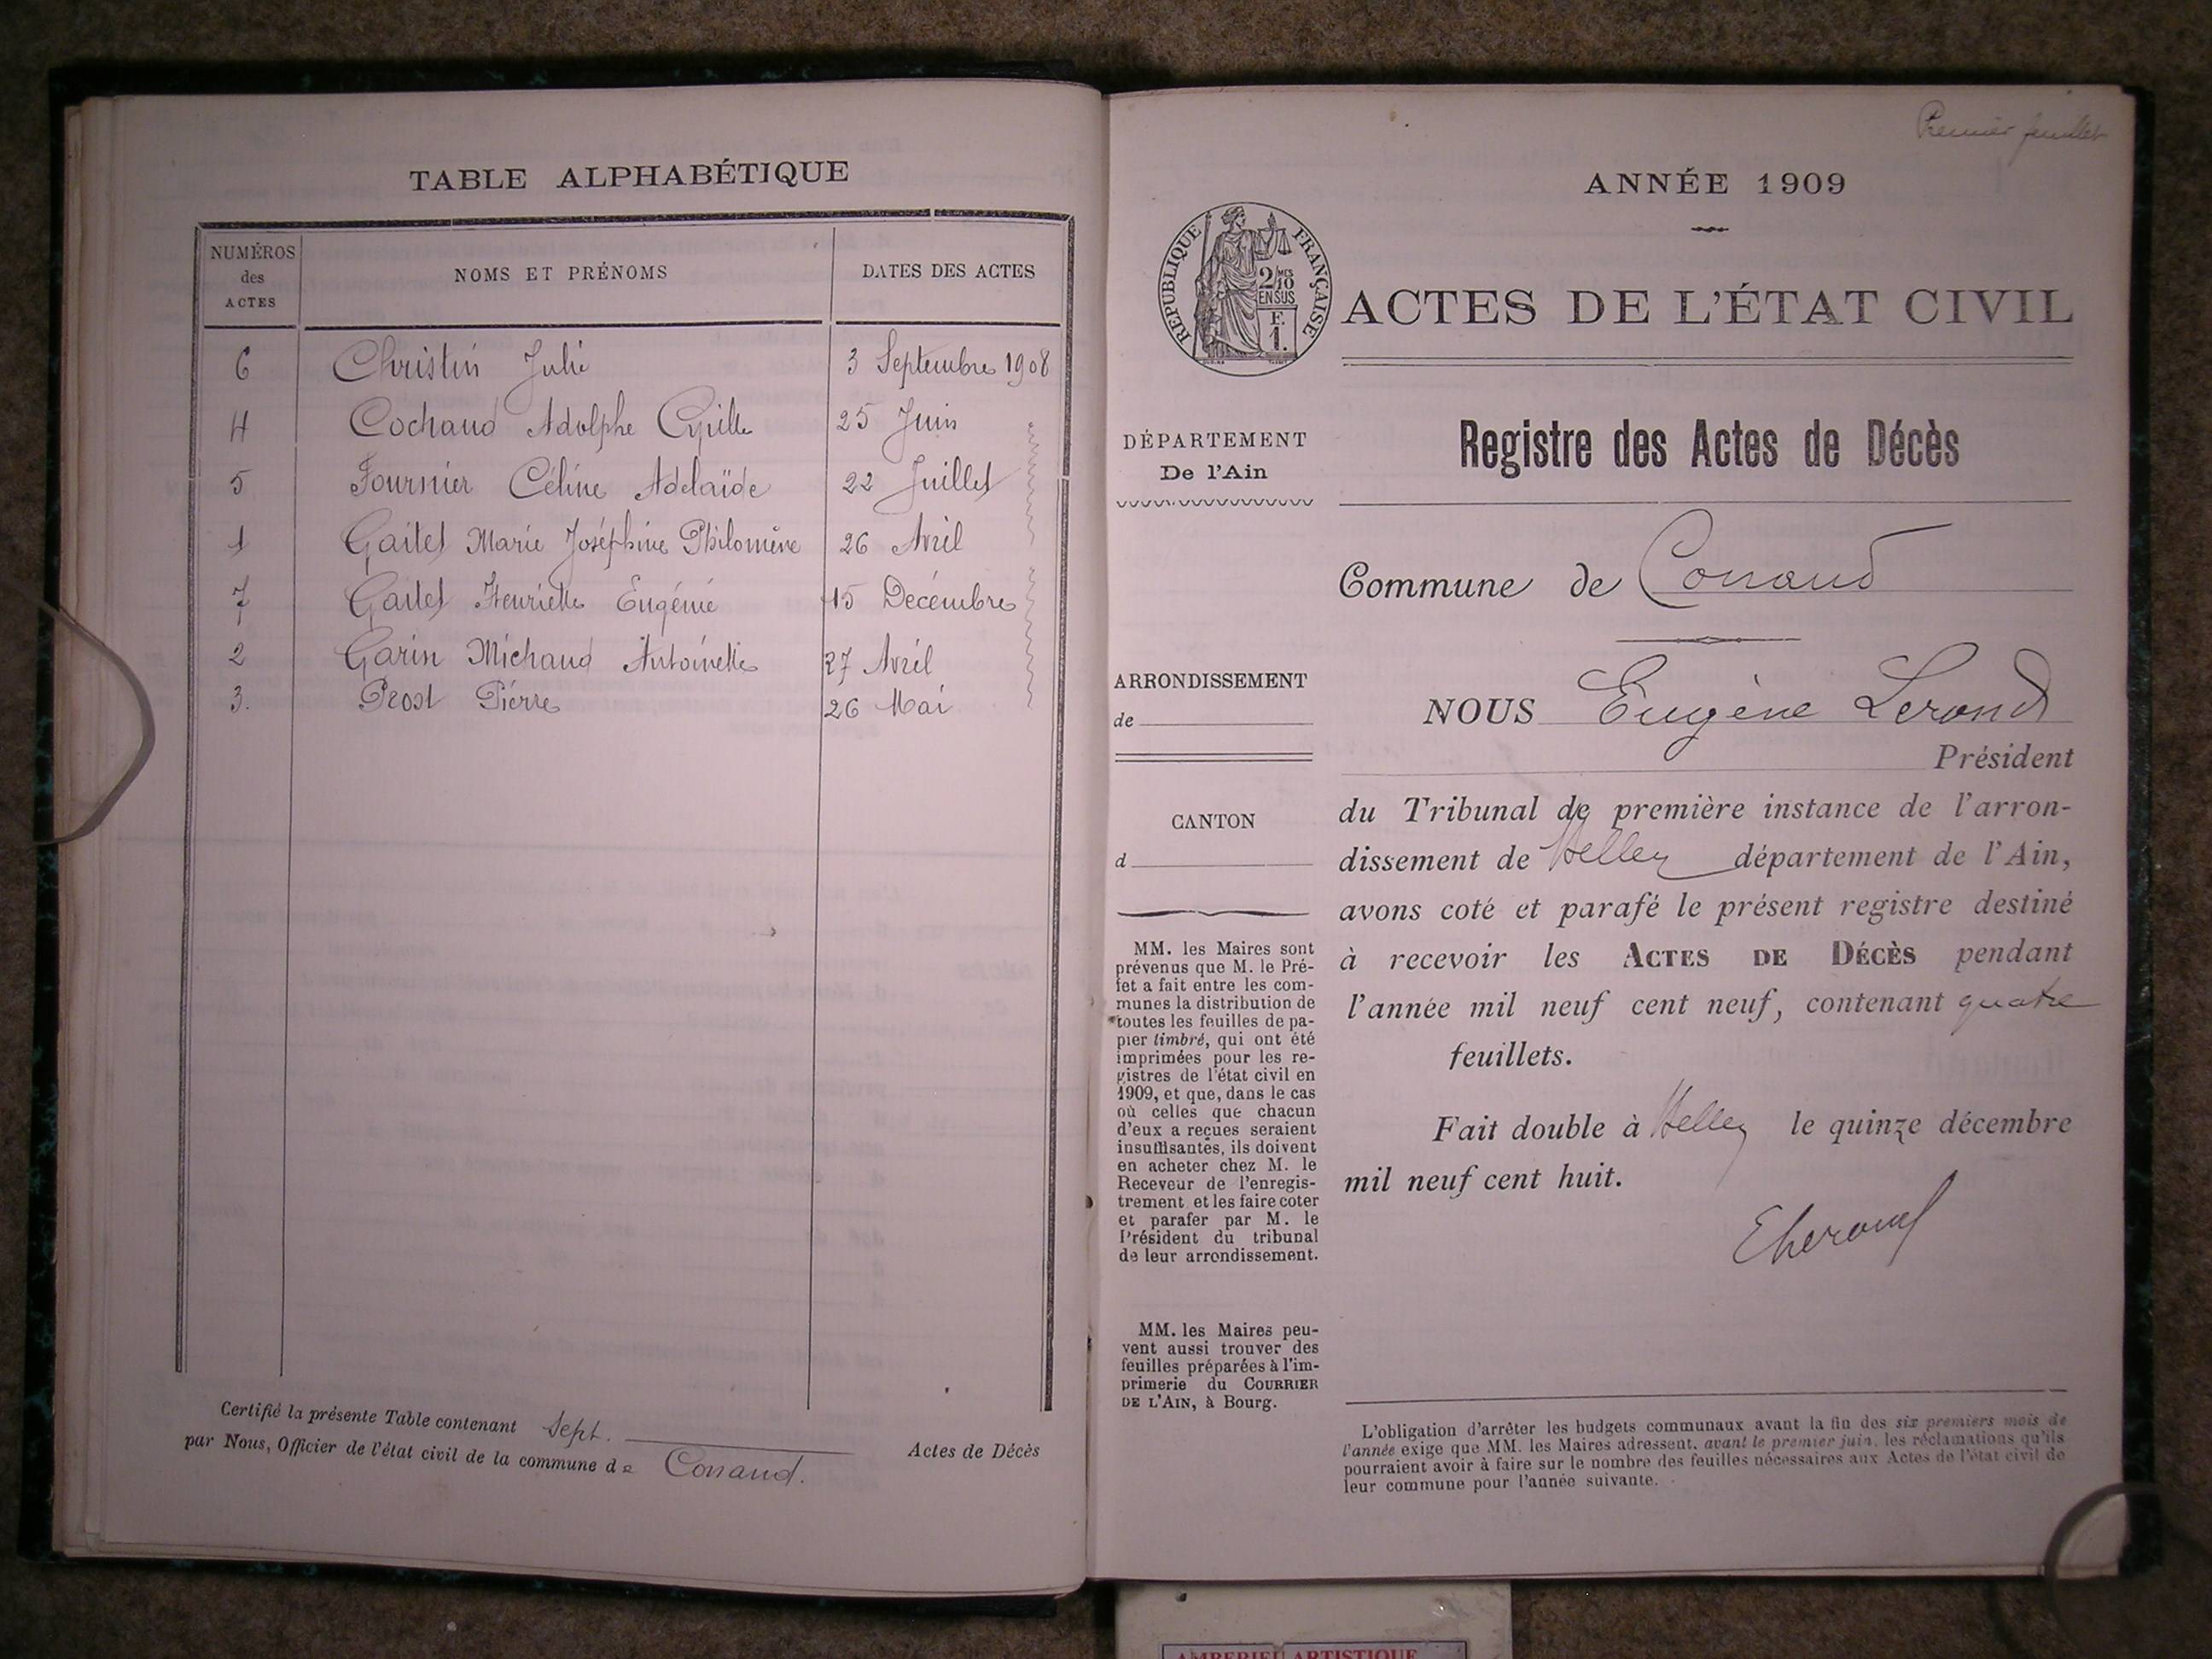 TABLE ALPHABÉTIQUE
NUMÉROS
des
ACTES
NOMS ET PRÉNOMS
DATES DES ACTES
6 Christin Julie 3 Septembre 1908
4 Cochaud Adolphe Cyrille 25 Juin
5 Fournier Céline Adelaïde 22 Juillet
1 Gaitet Marie Joséphine Philomène 26 Avril
7 Gaitet Henriette Eugénie 15 Decémbre
2 Garin Michaud Antoinette 27 Avril
3. Prost Pierre 26 Mai
Certifié la présente Table contenant Sept. Actes de Décès
par Nous, Officier de l'état civil de la commune de Conand.
Premier feuillet
ANNÉE 1909
RÉPUBLIQUE FRANÇAISE
2/10 MES
EN SUS
F.
1.
ACTES DE L'ÉTAT CIVIL
DÉPARTEMENT
De l'Ain
Registre des Actes de Décès
Commune de Conand
ARRONDISSEMENT
de
CANTON
d
NOUS Eugène Lerond
Président
du Tribunal de première instance de l'arron-
dissement de Belley département de l'Ain,
avons coté et parafé le présent registre destiné
à recevoir les ACTES DE DÉCÈS pendant
l'année mil neuf cent neuf, contenant quatre
feuillets.
Fait double à Belley le quinze décembre
mil neuf cent huit.
ELerond
MM. les Maires sont
prévenus que M. le Pré-
fet a fait entre les com-
munes la distribution de
toutes les feuilles de pa-
pier timbré, qui ont été
imprimées pour les re-
gistres de l'état civil en
1909, et que, dans le cas
où celles que chacun
d'eux a reçues seraient
insuffisantes, ils doivent
en acheter chez M. le
Receveur de l'enregis-
trement et les faire coter
et parafer par M. le
Président du tribunal
de leur arrondissement.
MM. les Maires peu-
vent aussi trouver des
feuilles préparées à l'im-
primerie du COURRIER
DE L'AIN, à Bourg.
L'obligation d'arrêter les budgets communaux avant la fin des six premiers mois de
l'année exige que MM. les Maires adressent, avant le premier juin, les réclamations qu'ils
pourraient avoir à faire sur le nombre des feuilles nécessaires aux Actes de l'état civil de
leur commune pour l'année suivante.
AMBERIEU ARTISTIQUE